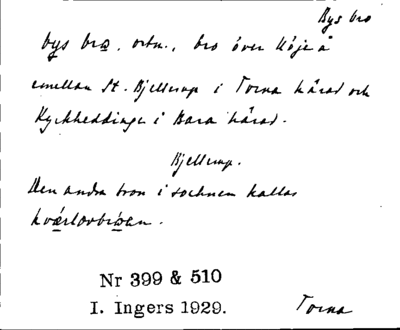 Bys bro
bys bro. ortn., bro över Höje å
emellan St. Bjellerup i Torna härad och
Kyrkheddinge i Bara härad.
Bjellerup.
Den andra bron i socknen kallas
Nr 399 & 510
I. Ingers 1929.
Torna